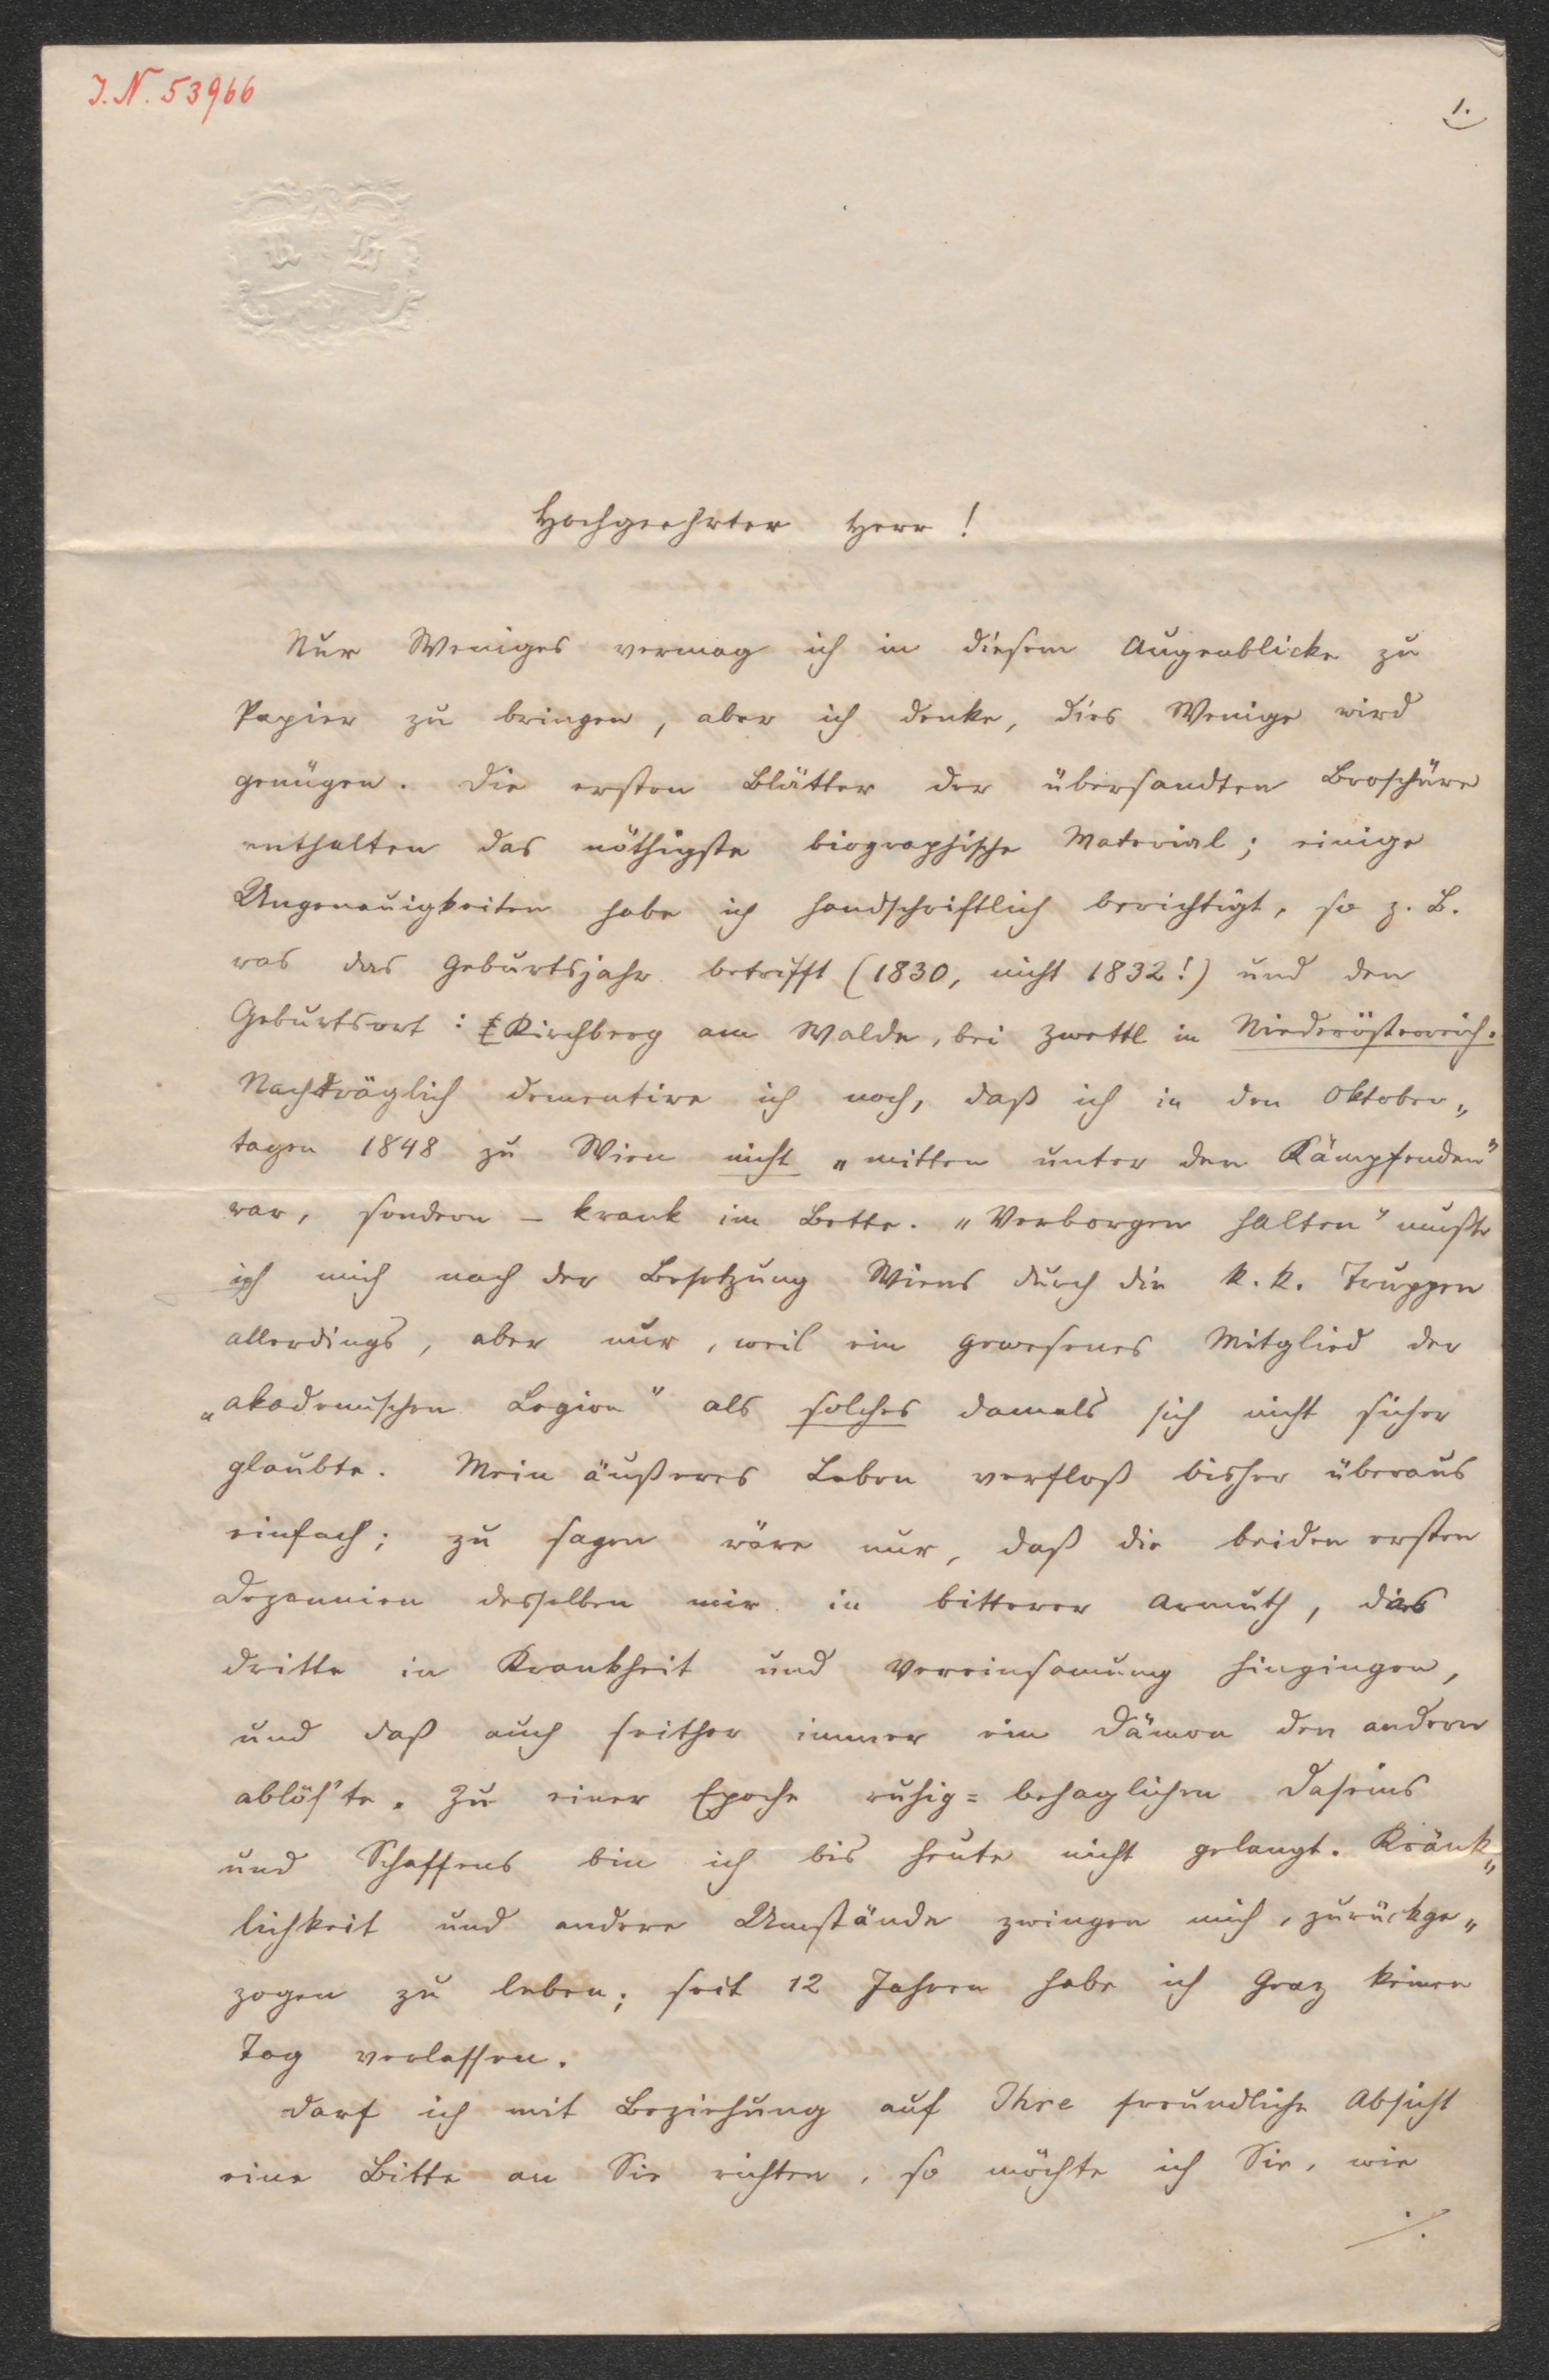 I. N. 53966
1.
Hochgeehrter Herr!
Nur Weniges vermag ich in diesem Augenblicke zu
Papier zu bringen, aber ich denke, dies Wenige wird
genügen. Die ersten Blätter der übersandten Broschüre
enthalten das nöthigste biographische Material; einige
Ungenauigkeiten habe ich handschriftlich berichtigt, so z. B.
was das Geburtsjahr betrifft (1830, nicht 1832!) und den
Geburtsort: Kirchberg am Walde, bei Zwettl in Niederösterreich.
Nachträglich dementire ich noch, daß ich in den Oktober„
tagen 1848 zu Wien nicht „mitten unter den Kämpfenden"
war, sondern – krank im Bette. „Verborgen halten" mußte
ich mich nach der Besetzung Wiens durch die k. k. Truppen
allerdings, aber nur, weil ein gewesenes Mitglied der
„akademischen Legion" als solches damals sich nicht sicher
glaubte. Mein äußeres Leben verfloß bisher überaus
einfach; zu sagen wäre nur, daß die beiden ersten
Dezennien desselben mir in bitterer Armuth, das
dritte in Krankheit und Vereinsamung hingingen,
und daß auch seither immer ein Dämon den andern
ablös'te. Zu einer Epoche ruhig=behaglichen Daseins
und Schaffens bin ich bis heute nicht gelangt. Kränk„
lichkeit und andere Umstände zwingen mich, zurückge„
zogen zu leben; seit 12 Jahren habe ich Graz keinen
Tag verlassen.
Darf ich mit Beziehung auf Ihre freundliche Absicht
eine Bitte an Sie richten, so möchte ich Sie, wie
./.